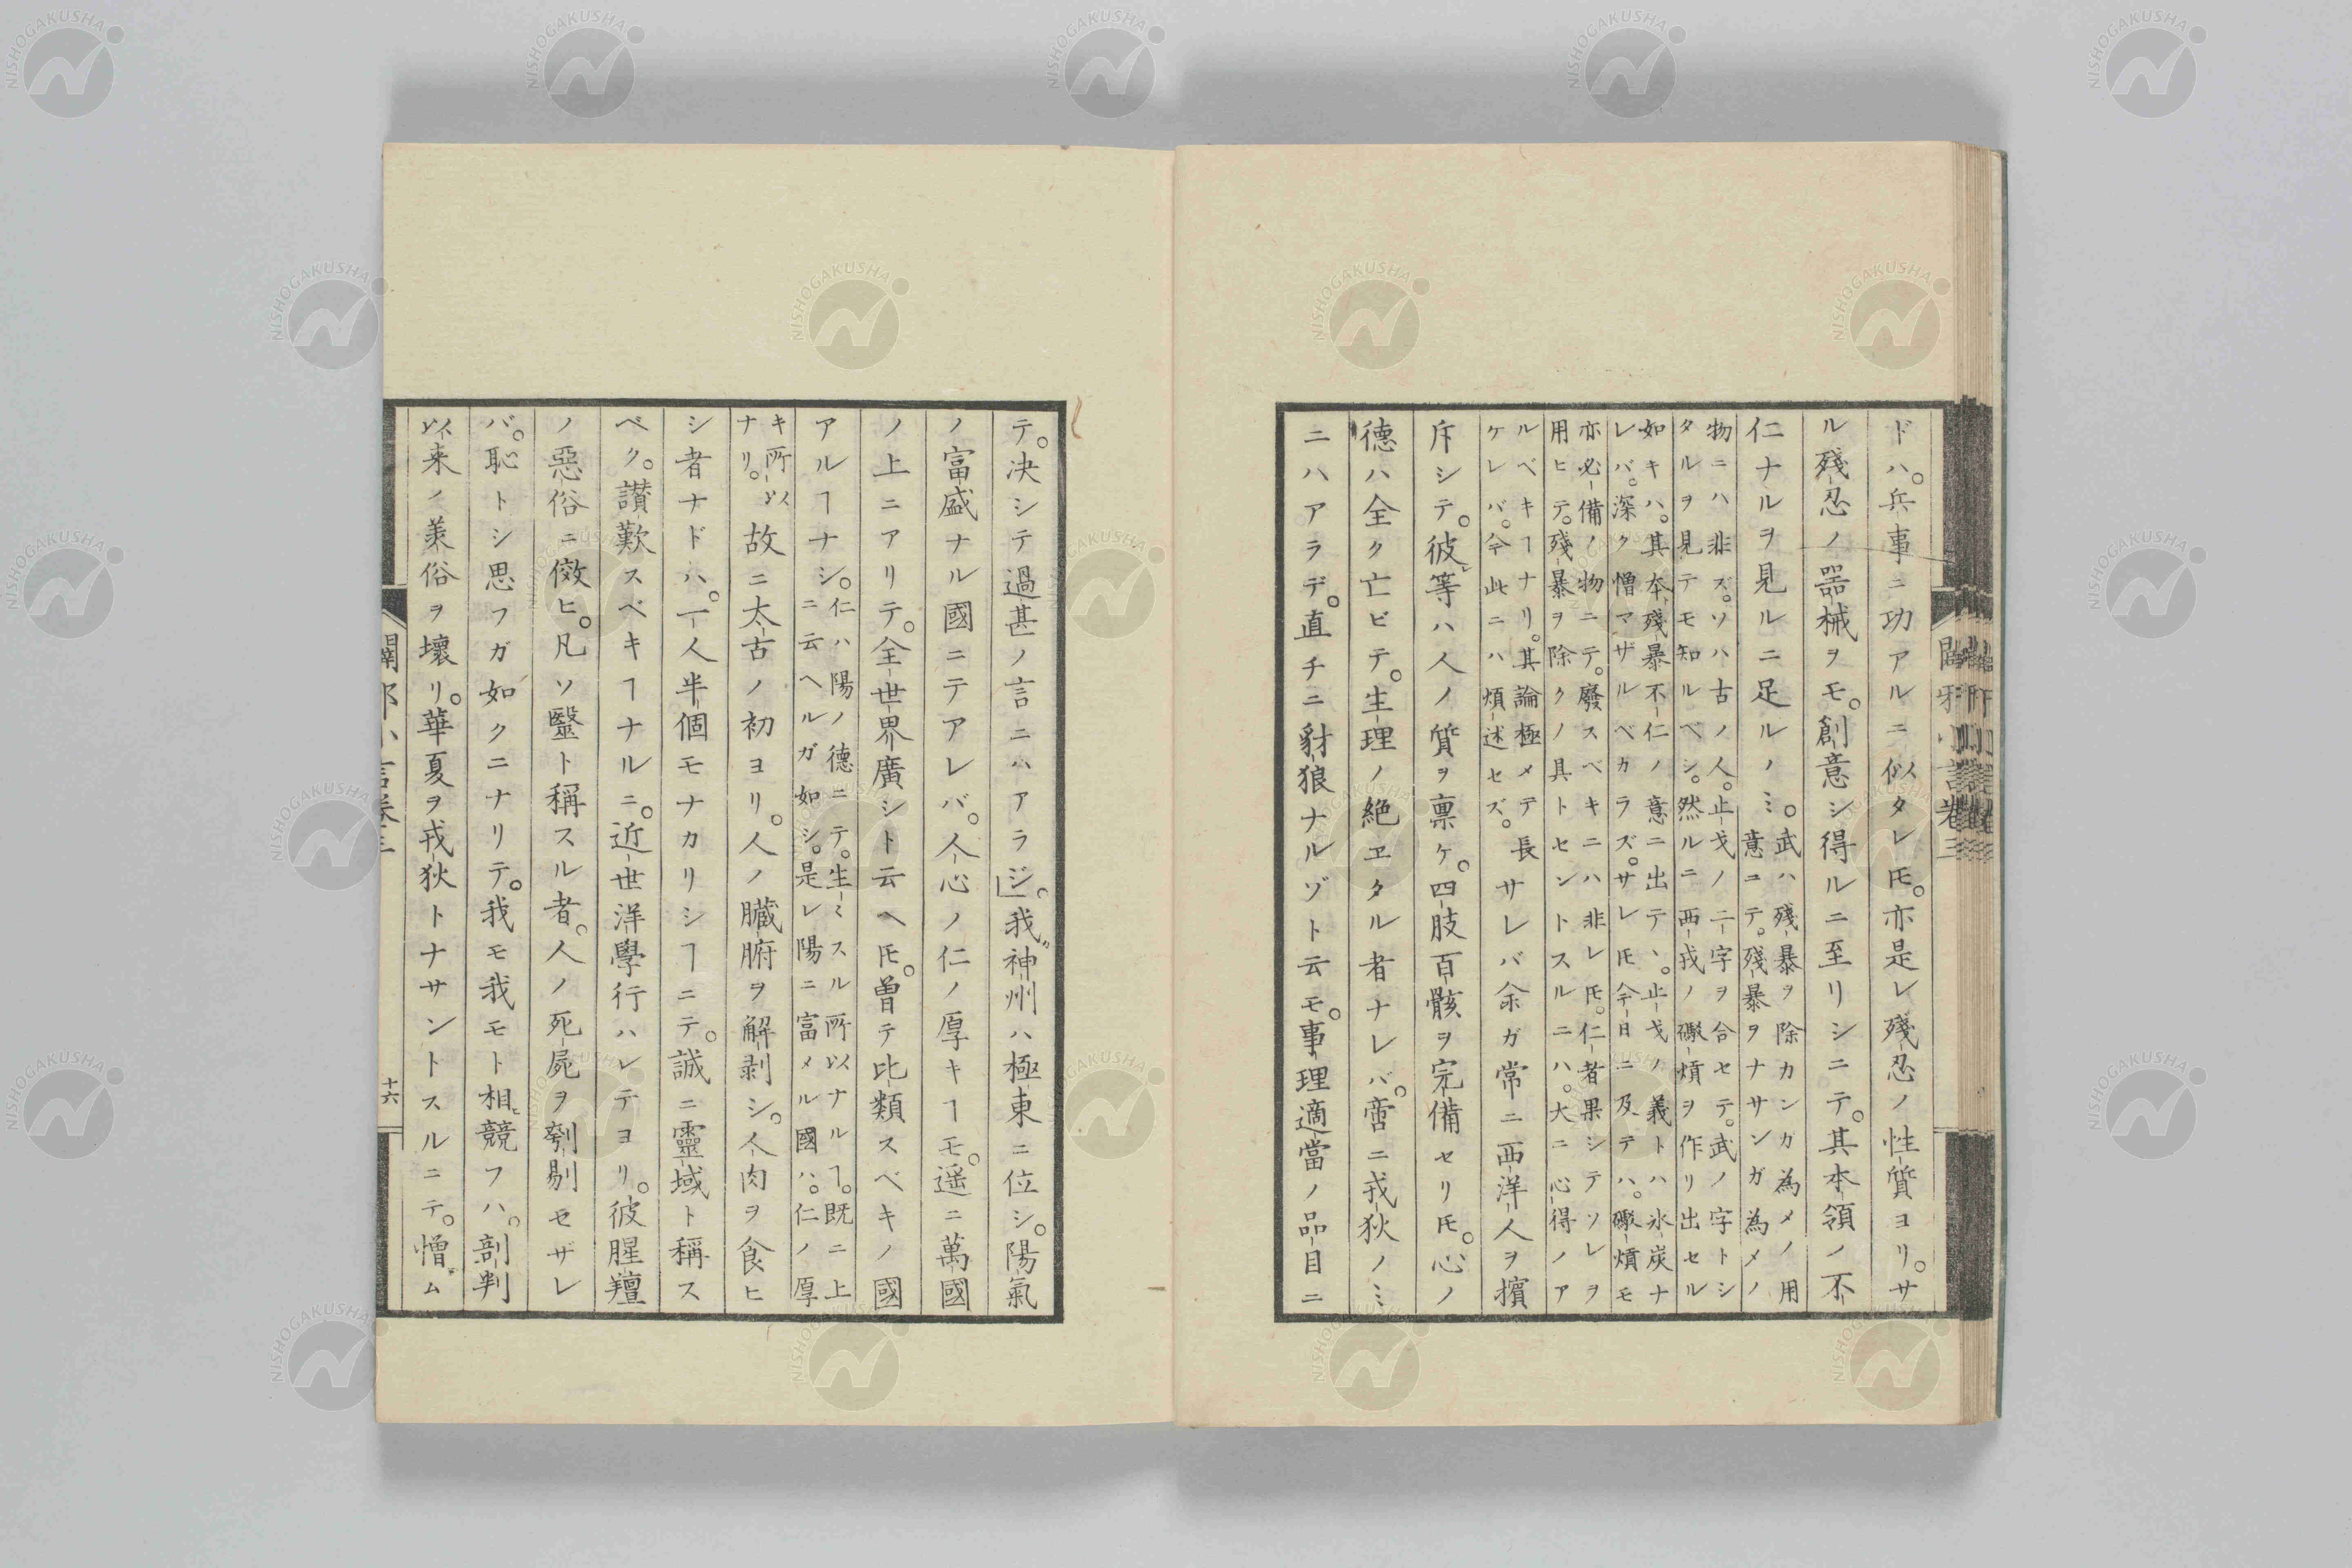 ドハ。兵事ニ功アルニ似タレ𪜈。亦是レ殘忍ノ性質ヨリ。サ
ル殘忍ノ噐械ヲモ。創意シ得ルニ至リシニテ。其本領ノ不
仁ナルヲ見ルニ足ルノミ。武ハ殘暴ヲ除カンガ為メノ用
意ニテ。殘暴ヲナサンガ為メノ
物ニハ非ズ。ソハ古ノ人。止戈ノ二字ヲ合セテ。武ノ字トシ
タルヲ見テモ知ルベシ。然ルニ西戎ノ礮熕ヲ作リ出セル
如キハ。其本殘暴不仁ノ意ニ出テヽ。止戈ノ義トハ氷炭ナ
レバ。深ク憎マザルベカラズ。サレ𪜈今日ニ及テハ。礮熕モ
亦必備ノ物ニテ。廢スベキニハ非レ𪜈。仁者果シテソレヲ
用ヒテ。殘暴ヲ除クノ具トセントスルニハ。大ニ心得ノア
ルベキヿナリ。其論極メテ長
ケレバ。今此ニハ煩述セズ。サレバ余ガ常ニ西洋人ヲ擯
斥シテ。彼等ハ人ノ質ヲ稟ケ。四肢百骸ヲ完備セリ𪜈。心ノ
德ハ全ク亡ビテ。生理ノ絶ヱタル者ナレバ。啻ニ戎狄ノミ
ニハアラデ。直チニ豺狼ナルゾト云モ。事理適當ノ品目ニ
テ。決シテ過甚ノ言ニハアラジ。我神州ハ極東ニ位シ。陽氣
ノ富盛ナル國ニテアレバ。人心ノ仁ノ厚キヿモ。遥ニ萬國
ノ上ニアリテ。全世界廣シト云ヘ𪜈。曽テ比類スベキノ國
アルヿナシ。仁ハ陽ノ德ニテ。生ミスル所以ナルヿ。既ニ上
ニ云ヘルガ如シ。是レ陽ニ富メル國ハ。仁ノ厚
キ所以
ナリ。故ニ太古ノ初ヨリ。人ノ臓腑ヲ解剥シ。人肉ヲ食ヒ
シ者ナドハ。一人半個モナカリシヿニテ。誠ニ靈域ト稱ス
ベク。讃歎スベキヿナルニ。近世洋學行ハレテヨリ。彼腥羶
ノ惡俗ニ傚ヒ。凡ソ毉ト稱スル者。人ノ死屍ヲ刳剔セザレ
バ。恥トシ思フガ如クニナリテ。我モ我モト相競フハ。剖判
以来ノ羙俗ヲ壞リ。華夏ヲ戎狄トナサントスルニテ。憎ム
十六